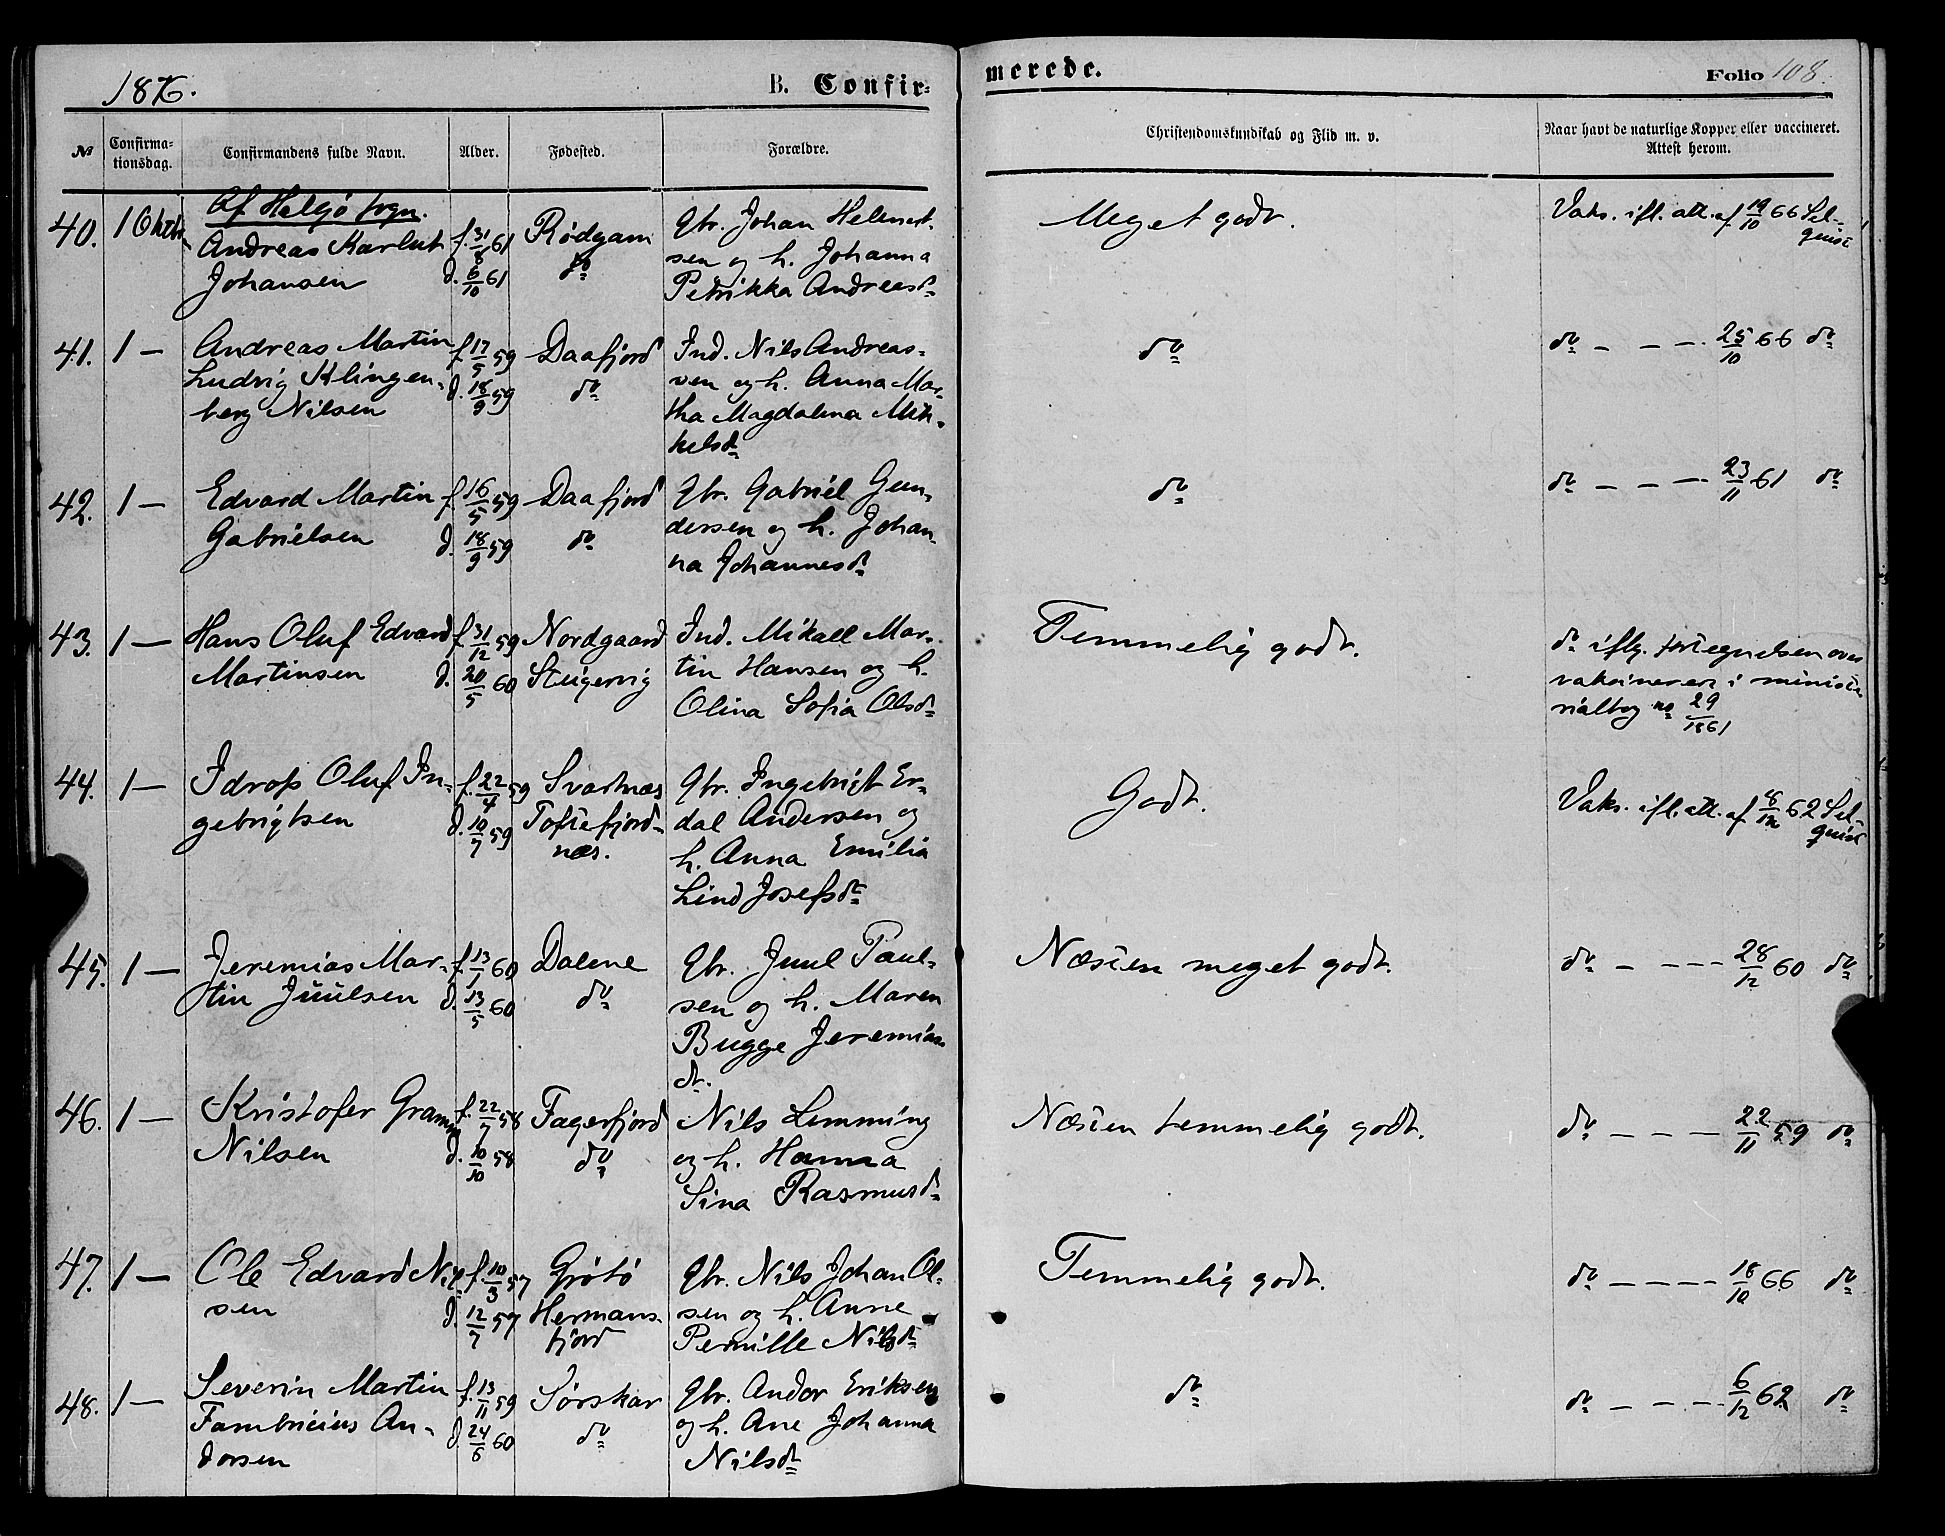 1876.
B. Confir-
merede.
Folio 108.
№
Confirma-
tionsdag.
Confirmandens fulde Navn.
Alder.
Fødested.
Forældre.
Christendomskundskab og Flid m. v.
Naar havt de naturlige Kopper eller vaccineret.
Attest herom.
Af Helgö sogn.
40. 1 Oktbr.
Andreas Karlut
Johansen
f. 31/8 61
d. 6/10 61
Rödgam
do
Gbr. Johan Helmert-
sen og h. Johanna
Petrikka Andreasd.
Meget godt.
Vaks. ifl. att. af 19/10 66 Sel-
quist
41. 1 —
Andreas Martin
Ludvig Klingen-
berg Nilsen
f. 17/5 59
d. 18/9 59
Daafjord
do
Ind. Nils Andreas-
sen og h. Anna Mar-
tha Magdalena Mik-
kelsdr
do
do — — — 25/10 66 do
42. 1 —
Edvard Martin
Gabrielsen
f. 16/5 59
d. 18/9 59
Daafjord
do
Gbr. Gabriel Gun-
dersen og h. Johan-
na Johannesdr
do
do — — — 23/11 61 do
43. 1 —
Hans Oluf Edvard
Martinsen
f. 31/12 59
d. 20/5 60
Nordgaard
Steigervig
Ind. Mikael Mar-
tin Hansen og h.
Olina Sofia Olsdr
Temmelig godt.
do iflg. fortegnelsen over
vaksinerere i ministe
rialbog no 29/1861
44. 1 —
Idrop Oluf In-
gebrigtsen
f. 22/4 59
d. 10/7 59
Svartnæs
Toftefjord-
næs.
Gbr. Ingebrigt Er-
dal Andersen og
h. Anna Emilia
Lind Josefsdr
Godt.
Vaks. ifl. att. af 8/12 62 Sel-
quist
45. 1 —
Jeremias Mar-
tin Juulsen
f. 13/1 60
d. 13/5 60
Dalene
do
Gbr. Juul Paul-
sen og h. Maren
Bugge Jeremias-
dr.
Næsten meget godt.
do — — — — 28/12 60 do
46. 1 —
Kristofer Gramm
Nilsen
f. 22/7 58
d. 10/10 58
Fagerfjord
do
Nils Lemming
og h. Hanna
Sina Rasmusdr
Næsten temmelig godt.
do — — — 22/11 59 do
47. 1 —
Ole Edvard Nil-
sen
f. 10/3 57
d. 12/7 57
Grötö
Hermans-
fjord
Gbr. Nils Johan Ol-
sen og h. Anne
Pernille Nilsdr
Temmelig godt.
do — — — — 18/10 66 do
48. 1 —
Severin Martin
Fambricius An-
dorsen
f. 13/11 59
d. 24/6 60
Sörskar
do
Gbr. Andor Eriksen
og h. Ane Johanna
Nilsdr
do
do — — — 6/12 62 do